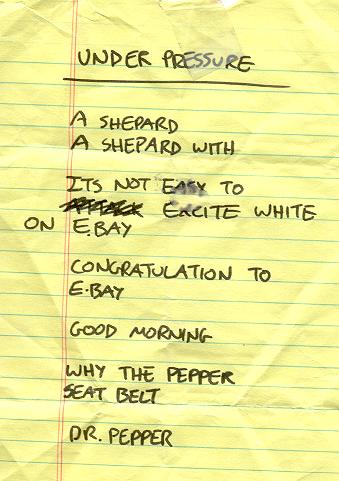 UNDER PRESSURE
A SHEPARD
A SHEPARD WITH
ITS NOT EASY TO
EXCITE WHITE
ON E.BAY
CONGRATULATION TO
E.BAY
GOOD MORNING
WHY THE PEPPER
SEAT BELT
DR. PEPPER